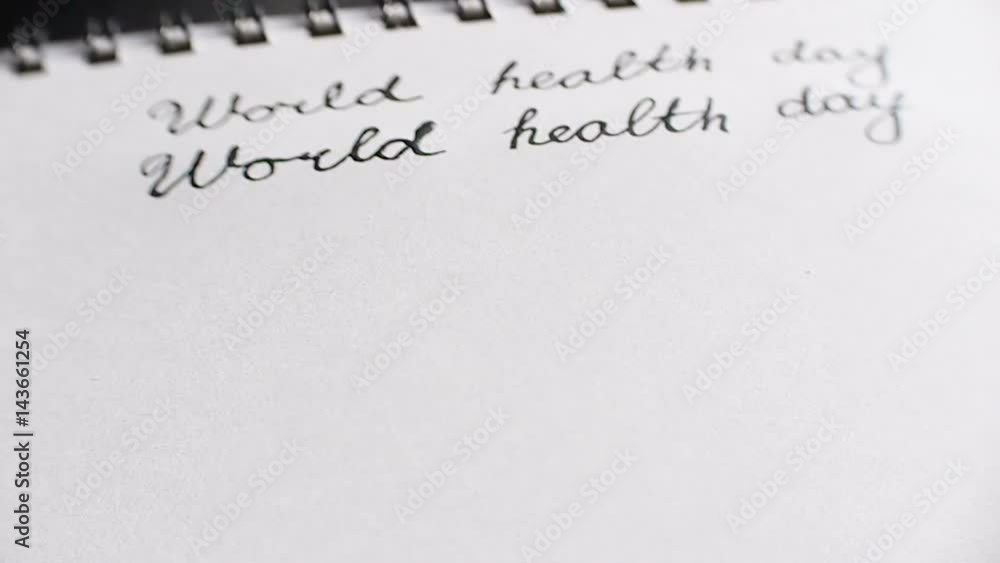 World health day
World health day
Adobe Stock | #143661254